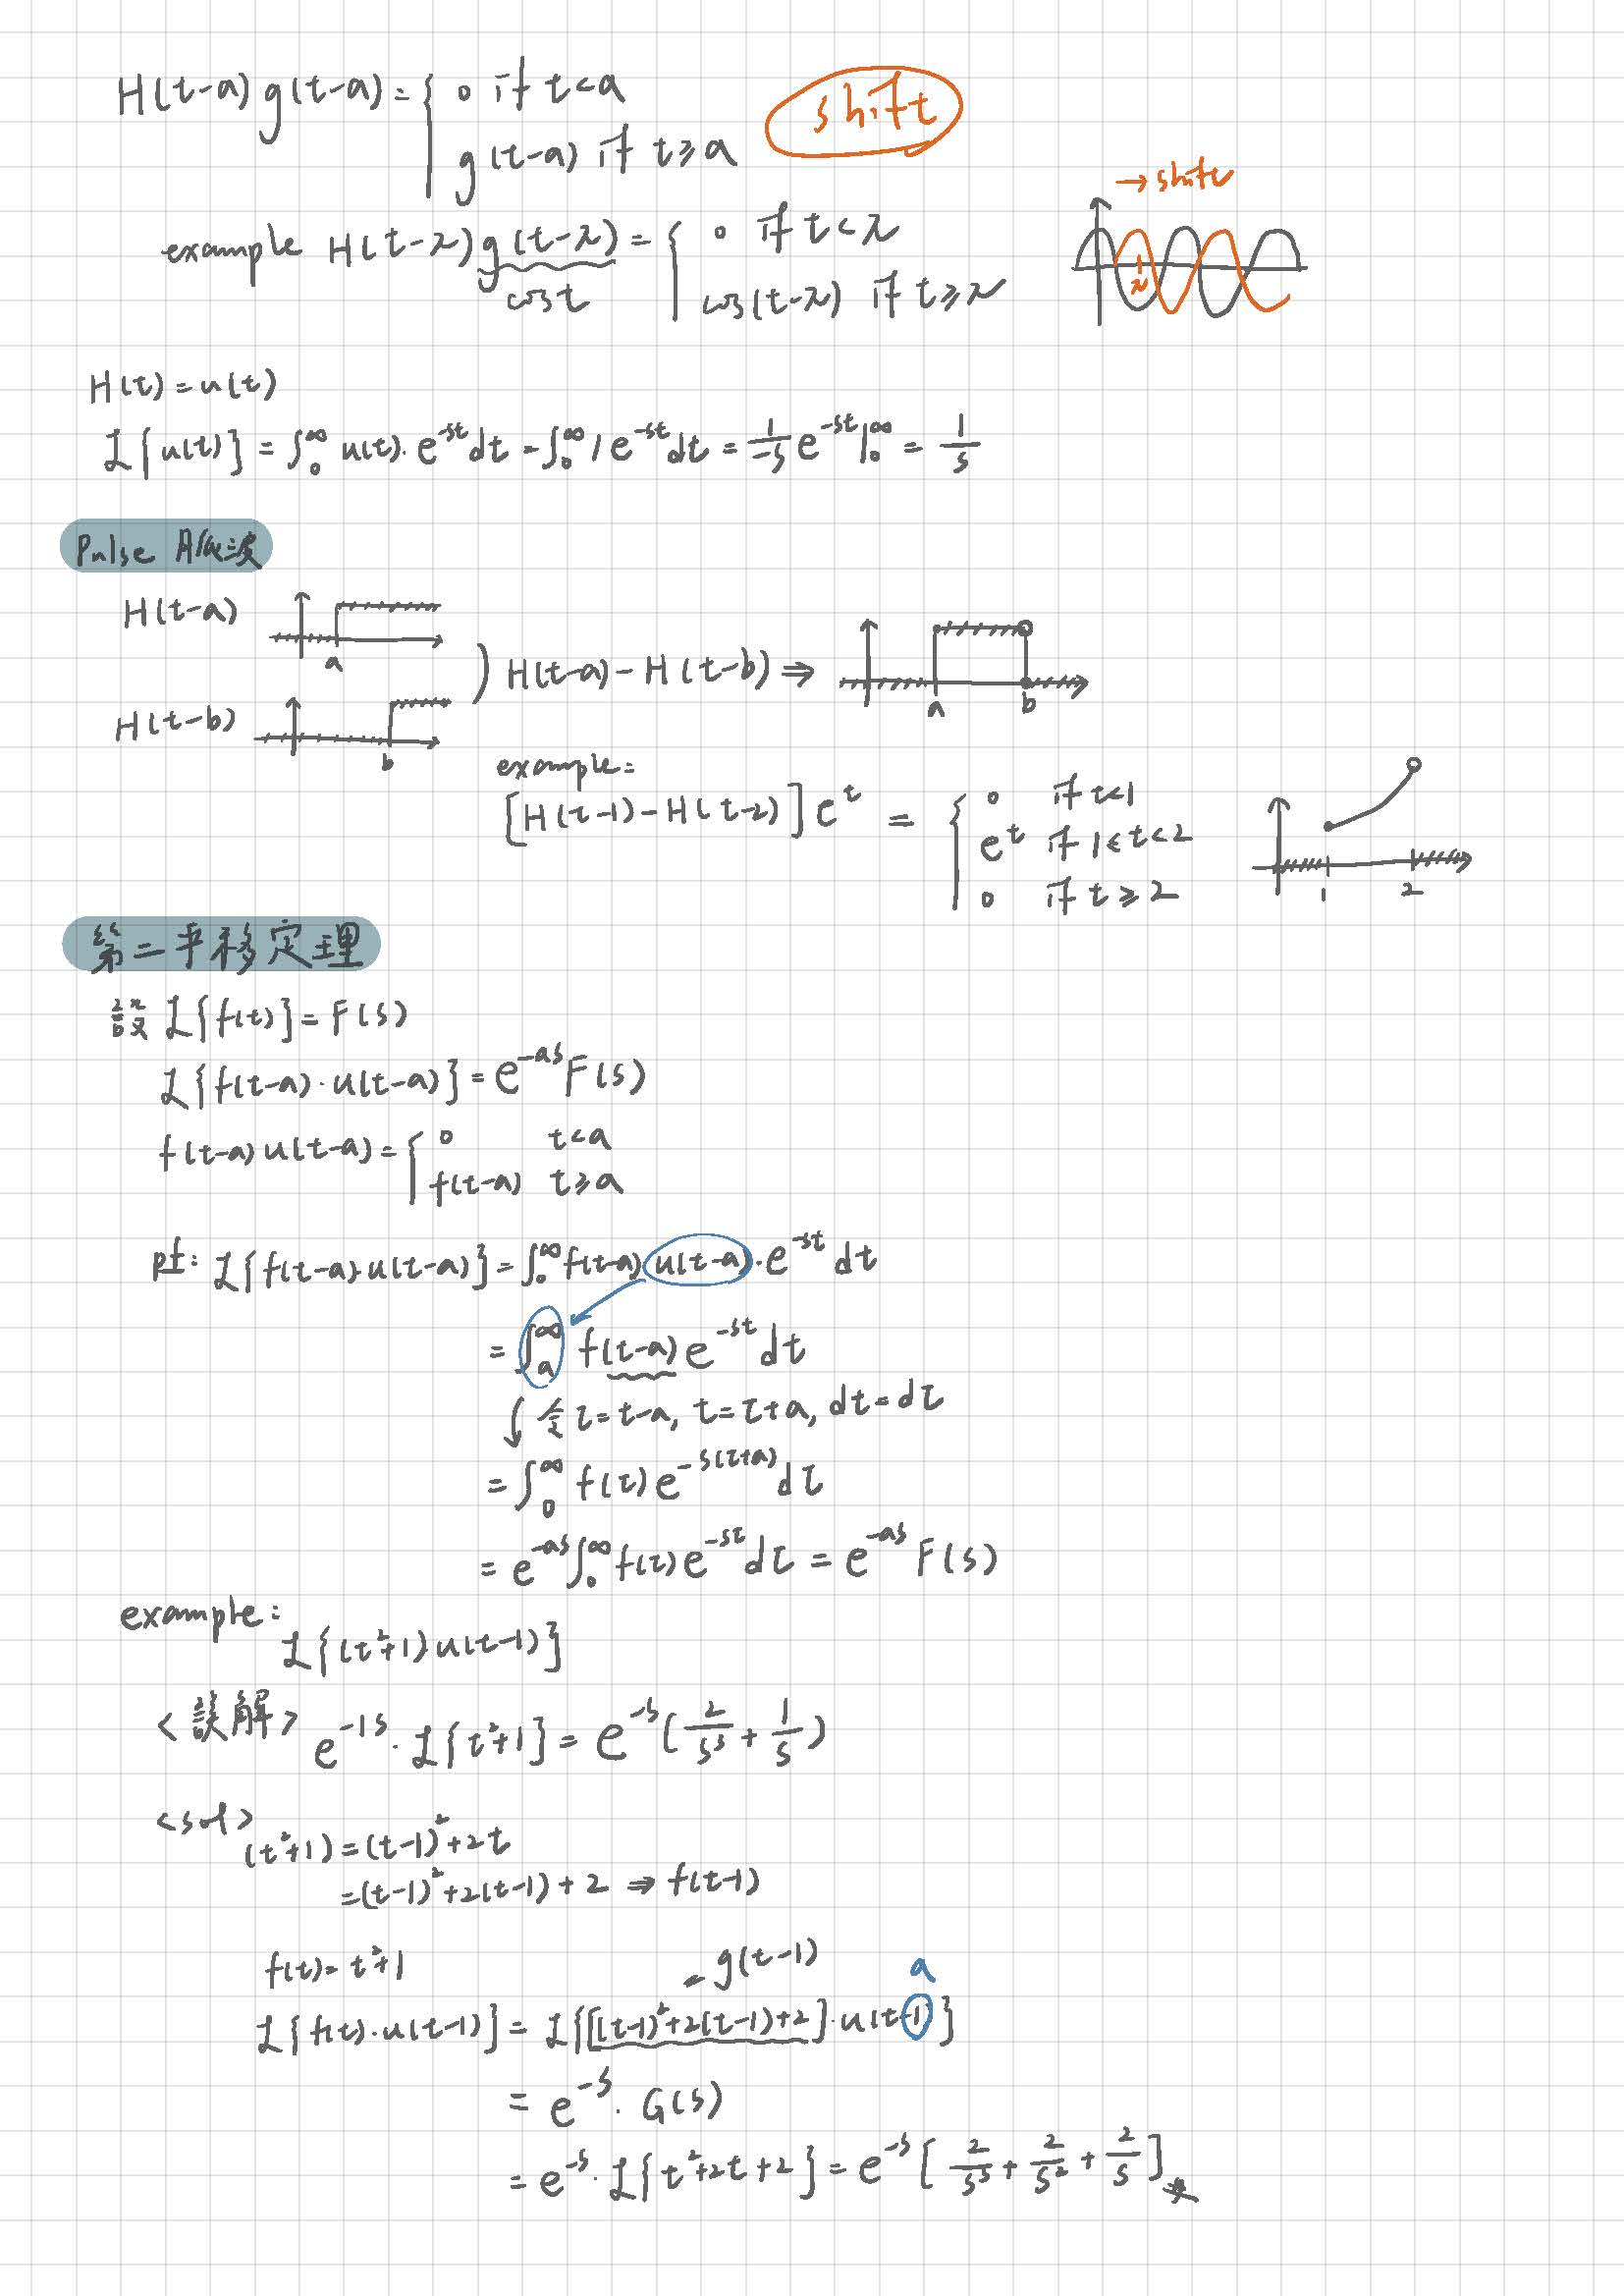 H(t-a) g(t-a) = { 0 if t<a
g(t-a) if t≥a
shift
→ shift
example H(t-π) g(t-π) = { 0 if t<π
cost
cos(t-π) if t≥π
π
H(t) = u(t)
ℒ{u(t)} = ∫₀^∞ u(t)·e^{-st}dt = ∫₀^∞ 1 e^{-st}dt = 1/-s e^{-st}|₀^∞ = 1/s
Pulse 脈波
H(t-a)
a
H(t-b)
b
) H(t-a) - H(t-b) ⇒
a b
example:
[H(t-1) - H(t-2)] e^t = { 0 if t<1
e^t if 1≤t<2
0 if t≥2
1 2
第二平移定理
設 ℒ{f(t)} = F(s)
ℒ{f(t-a)·u(t-a)} = e^{-as}F(s)
f(t-a)u(t-a) = { 0 t<a
f(t-a) t≥a
pf: ℒ{f(t-a)·u(t-a)} = ∫₀^∞ f(t-a) u(t-a)·e^{-st} dt
= ∫ₐ^∞ f(t-a) e^{-st} dt
↓ 令 τ=t-a, t=τ+a, dt=dτ
= ∫₀^∞ f(τ) e^{-s(τ+a)} dτ
= e^{-as} ∫₀^∞ f(τ) e^{-sτ} dτ = e^{-as} F(s)
example:
ℒ{(t²+1)·u(t-1)}
<誤解> e^{-1s}·ℒ{t²+1} = e^{-s}(2/s³ + 1/s)
<sol>
(t²+1) = (t-1)²+2t
= (t-1)²+2(t-1)+2 ⇒ f(t-1)
f(t) = t²+1
= g(t-1)
a
ℒ{f(t)·u(t-1)} = ℒ{[(t-1)²+2(t-1)+2]·u(t-1)}
= e^{-s}·G(s)
= e^{-s}·ℒ{t²+2t+2} = e^{-s}[2/s³ + 2/s² + 2/s]